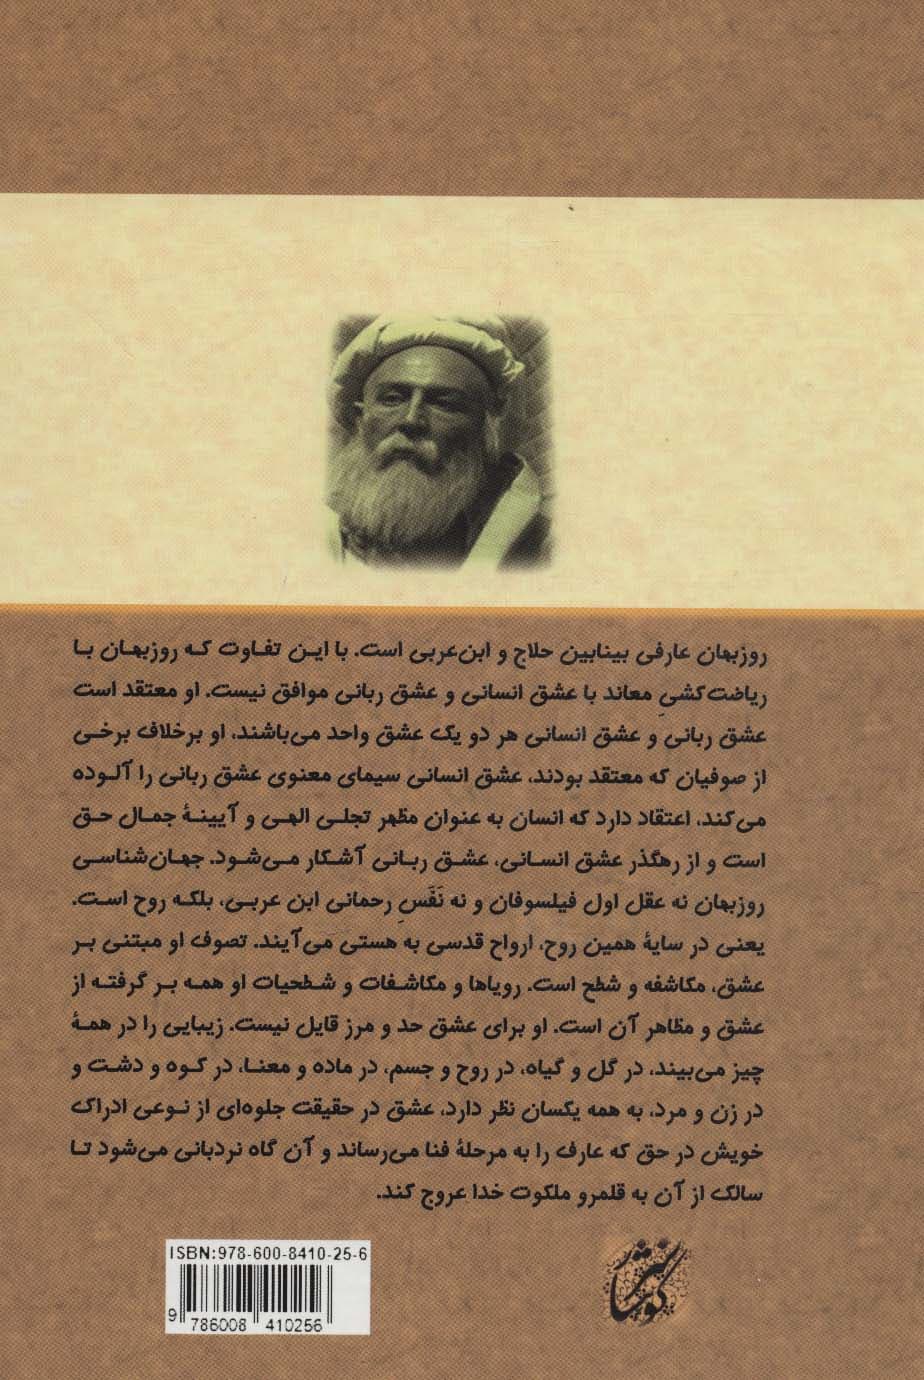 روزبهان عارفی بینابین حلاج و ابن‌عربی است. با این تفاوت که روزبهان با
ریاضت‌کشیِ معاند با عشق انسانی و عشق ربانی موافق نیست. او معتقد است
عشق ربانی و عشق انسانی هر دو یک عشق واحد می‌باشند، او برخلاف برخی
از صوفیان که معتقد بودند، عشق انسانی سیمای معنوی عشق ربانی را آلوده
می‌کند، اعتقاد دارد که انسان به عنوان مظهر تجلی الهی و آیینهٔ جمال حق
است و از رهگذر عشق انسانی، عشق ربانی آشکار می‌شود. جهان‌شناسی
روزبهان نه عقل اول فیلسوفان و نه نَفَسِ رحمانی ابن عربی، بلکه روح است.
یعنی در سایهٔ همین روح، ارواح قدسی به هستی می‌آیند. تصوف او مبتنی بر
عشق، مکاشفه و شطح است. رویاها و مکاشفات و شطحیات او همه بر گرفته از
عشق و مظاهر آن است. او برای عشق حد و مرز قایل نیست. زیبایی را در همهٔ
چیز می‌بیند، در گل و گیاه، در روح و جسم، در ماده و معنا، در کوه و دشت و
در زن و مرد، به همه یکسان نظر دارد، عشق در حقیقت جلوه‌ای از نوعی ادراک
خویش در حق که عارف را به مرحلهٔ فنا می‌رساند و آن گاه نردبانی می‌شود تا
سالک از آن به قلمرو ملکوت خدا عروج کند.
ISBN: 978-600-8410-25-6
9 786008 410256